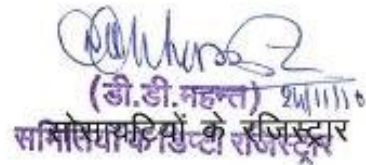 (डी.डी.महन्त) 24/11/16
सोसायटियों के रजिस्ट्रार
समितियों के डिप्टी रजिस्ट्रार